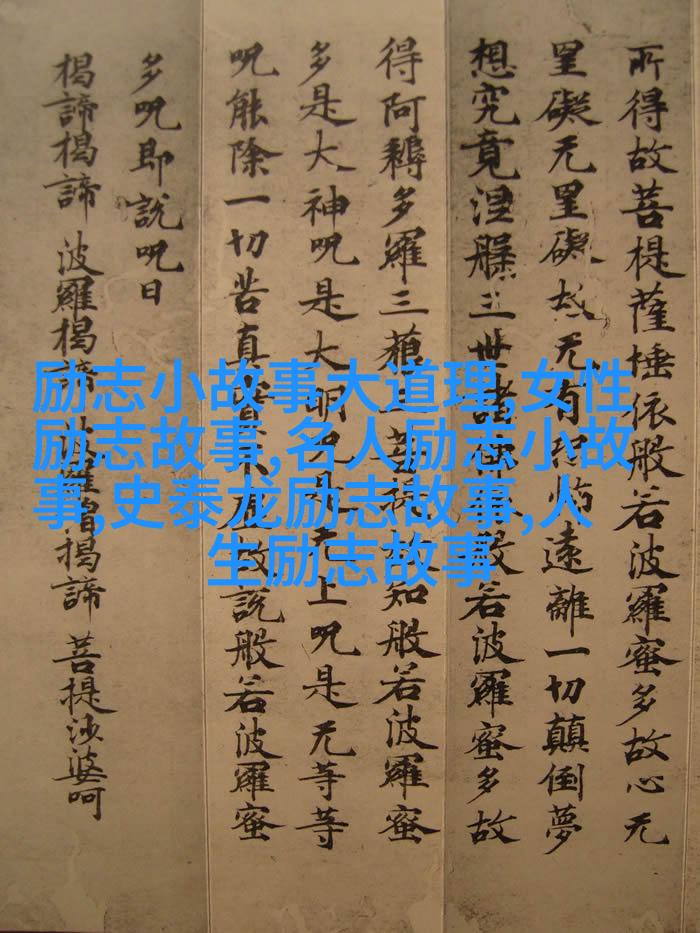 所得故菩提薩埵依般若波羅蜜多故心无
罣礙无罣礙故无有恐怖遠離一切顛倒夢
想究竟涅槃三世諸佛依般若波羅蜜多故
得阿耨多羅三藐三菩提故知般若波羅蜜
多是大神呪是大明呪是无上呪是无等等
呪能除一切苦真實不虛故說般若波羅蜜
多呪即說呪曰
揭諦揭諦 波羅揭諦 波羅僧揭諦 菩提沙婆呵
励志小故事大道理,女性
励志故事,名人励志小故
事,史泰龙励志故事,人
生励志故事